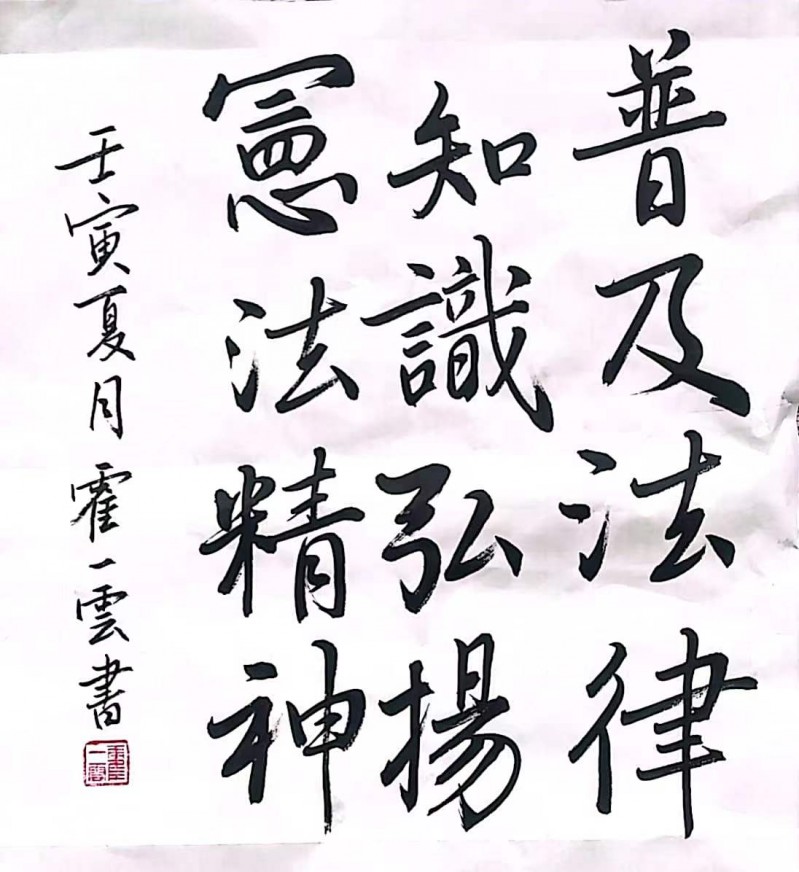 普及法律
知識弘揚
憲法精神
壬寅夏月霍一雲書